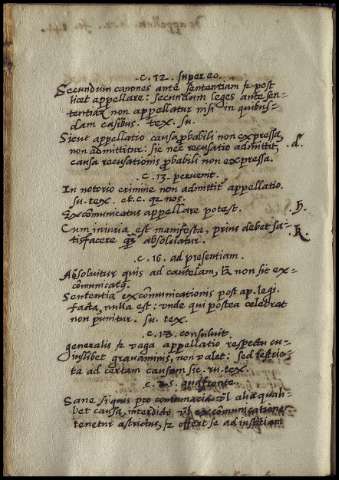 .c. 12. super eo.
Secundum canones ante sententiam et post
licet appellare: secundum leges ante sen-
tentiam non appellatur nisi in quibus-
dam casibus. tex. su.
Sicut appellatio causa probabili non expressa,
non admittitur: sic nec recusatio admittit,
causa recusationis probabili non expressa.
.c. 13. pervenit.
In notorio crimine non admittit appellatio.
su. tex. et. c. q; nos.
Excomunicatus appellare potest.
Cum iniuria est manifesta, prius debet sa-
tisfacere absolvatur.
.c. 16. ad presentiam.
Absolvitur quis ad cautelam, non sic ex-
cōmunicatꝰ.
Sententia excōmunicationis post ap. legi.
facta, nulla est: unde qui postea celebrat
non punitur. su. tex.
.c. 18. consuluit.
generalis et vaga appellatio respectu cu-
iuslibet gravaminis, non valet: sed restric-
ta ad certam causam sic. tex.
.c. 25.
Sane si quis pro contumacia vel alia qual-
bet causa, interdicto vel excōmunicatione
tenetur astrictus, et offert se ad